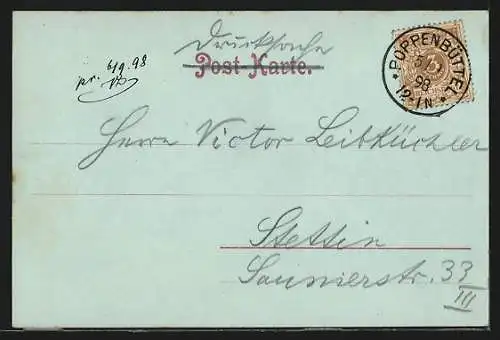 Drucksache
Post-Karte.
pr. 6/9. 98
* POPPENBÜTTEL *
5/9
98
12-1N
Herrn Victor Leibküchler
Stettin
Saunierstr. 33
III